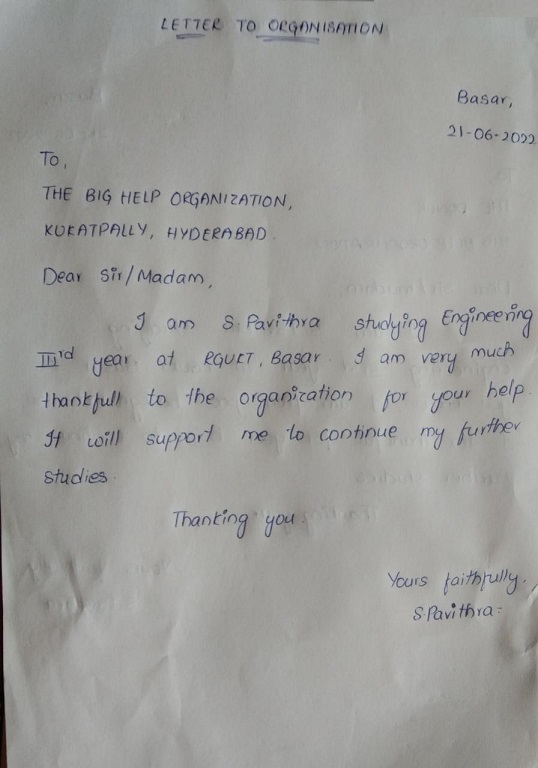 LETTER TO ORGANISATION
Basar,
21-06-2022
To,
THE BIG HELP ORGANIZATION,
KUKATPALLY, HYDERABAD.
Dear Sir/Madam,
I am S. Pavithra studying Engineering
IIIrd year at RGUKT, Basar. I am very much
thankfull to the organization for your help.
It will support me to continue my further
studies.
Thanking you.
Yours faithfully.
S.Pavithra